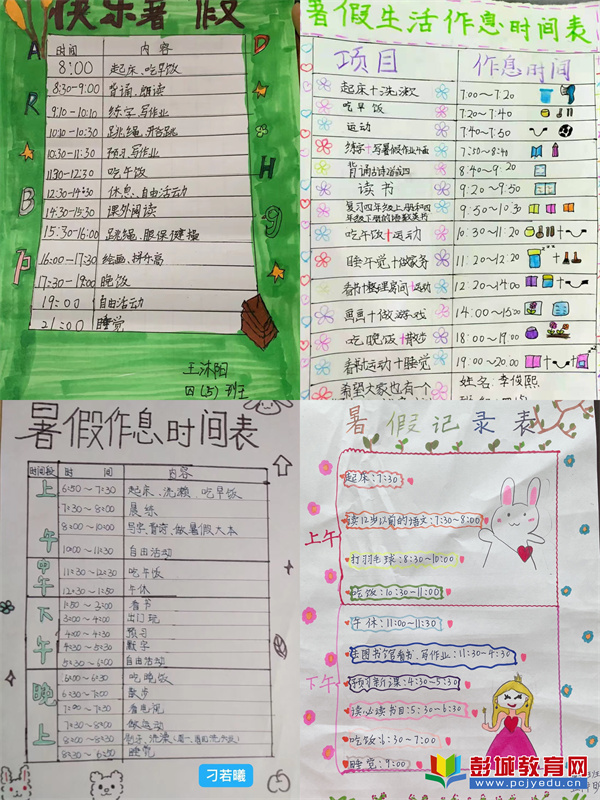 快乐暑假
时间 内容
8:00 起床、吃早饭
8:30-9:00 背诵、朗读
9:10-10:10 练字、写作业
10:10-10:30 跳绳、开合跳
10:30-11:30 预习、写作业
11:30-12:30 吃午饭
12:30-14:30 休息、自由活动
14:30-15:30 课外阅读
15:30-16:00 跳绳、眼保健操
16:00-17:30 绘画、拼乐高
17:30-19:00 晚饭
19:00 自由活动
21:00 睡觉
王沐阳
四(5)班
暑假生活作息时间表
项目 作息时间
起床+洗漱 7:00~7:20
吃早饭 7:20~7:40
运动 7:40~7:50
练字+写暑假作业 7:50~8:40
背诵古诗 8:40~9:20
读书 9:20~9:50
复习四年级上册和四年级下册的语数英书 9:50~10:30
吃午饭+运动 10:30~11:20
睡午觉+做家务 11:20~12:00
看书+整理房间+运动 12:00~14:00
画画+做游戏 14:00~15:00
吃晚饭+散步 18:00~19:00
看书+运动+睡觉 19:00~20:00
希望大家也有一个
姓名:李俊熙
暑假作息时间表
时间段 时间 内容
上午
6:50~7:30 起床、洗漱、吃早饭
7:30~8:00 晨练
8:00~10:00 写字、背诗、做暑假大本
10:00~11:30 自由活动
中午
11:30~12:30 吃午饭
12:30~1:50 午休
下午
1:50~3:00 看书
3:00~4:00 出门玩
4:00~4:30 预习
4:30~5:30 数学
5:30~6:00 自由活动
晚上
6:00~6:30 吃晚饭
6:30~7:00 散步
7:00~7:30 看电视
7:30~8:00 做运动
睡觉
刁若曦
暑假记录表
上午
起床:7:30
读12岁以前的语文:7:30~8:00
打羽毛球:8:30~10:00
吃饭:10:30~11:00
下午
午休:11:00~11:30
去图书馆看书、写作业:11:30~4:30
预习新课:4:30~5:30
读必读书目:5:30~6:30
吃饭:6:30~7:00
睡觉:9:00
彭城教育网
www.pcjyedu.cn